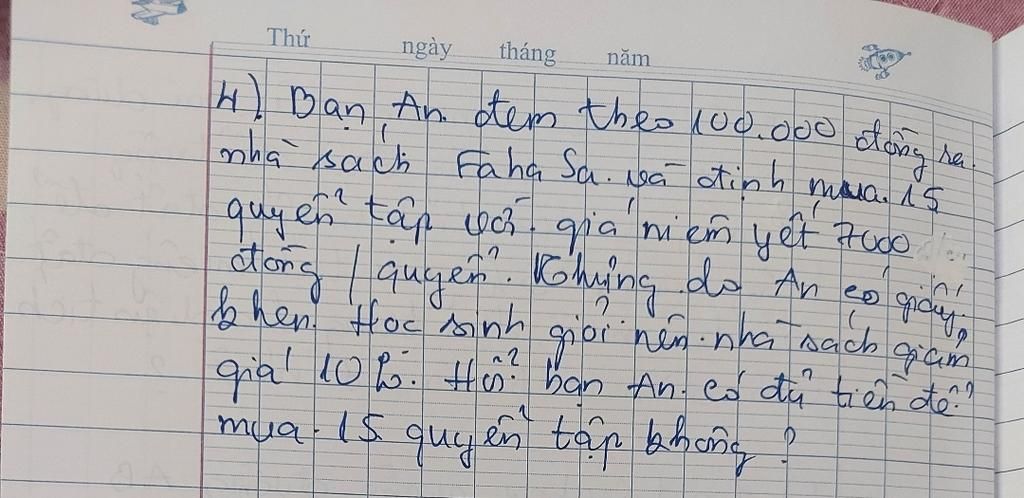 Thứ ngày tháng năm
4). Bạn An. đem theo 100.000 đồng ra.
nhà sách Faha Sa. và định mua. 15
quyển tập với giá niêm yết 7000
đồng / quyển. Nhưng do An có giấy
khen. Học sinh giỏi nên. nhà sách giảm
giá 10%. Hỏi bạn An. có đủ tiền để
mua. 15 quyển tập không?